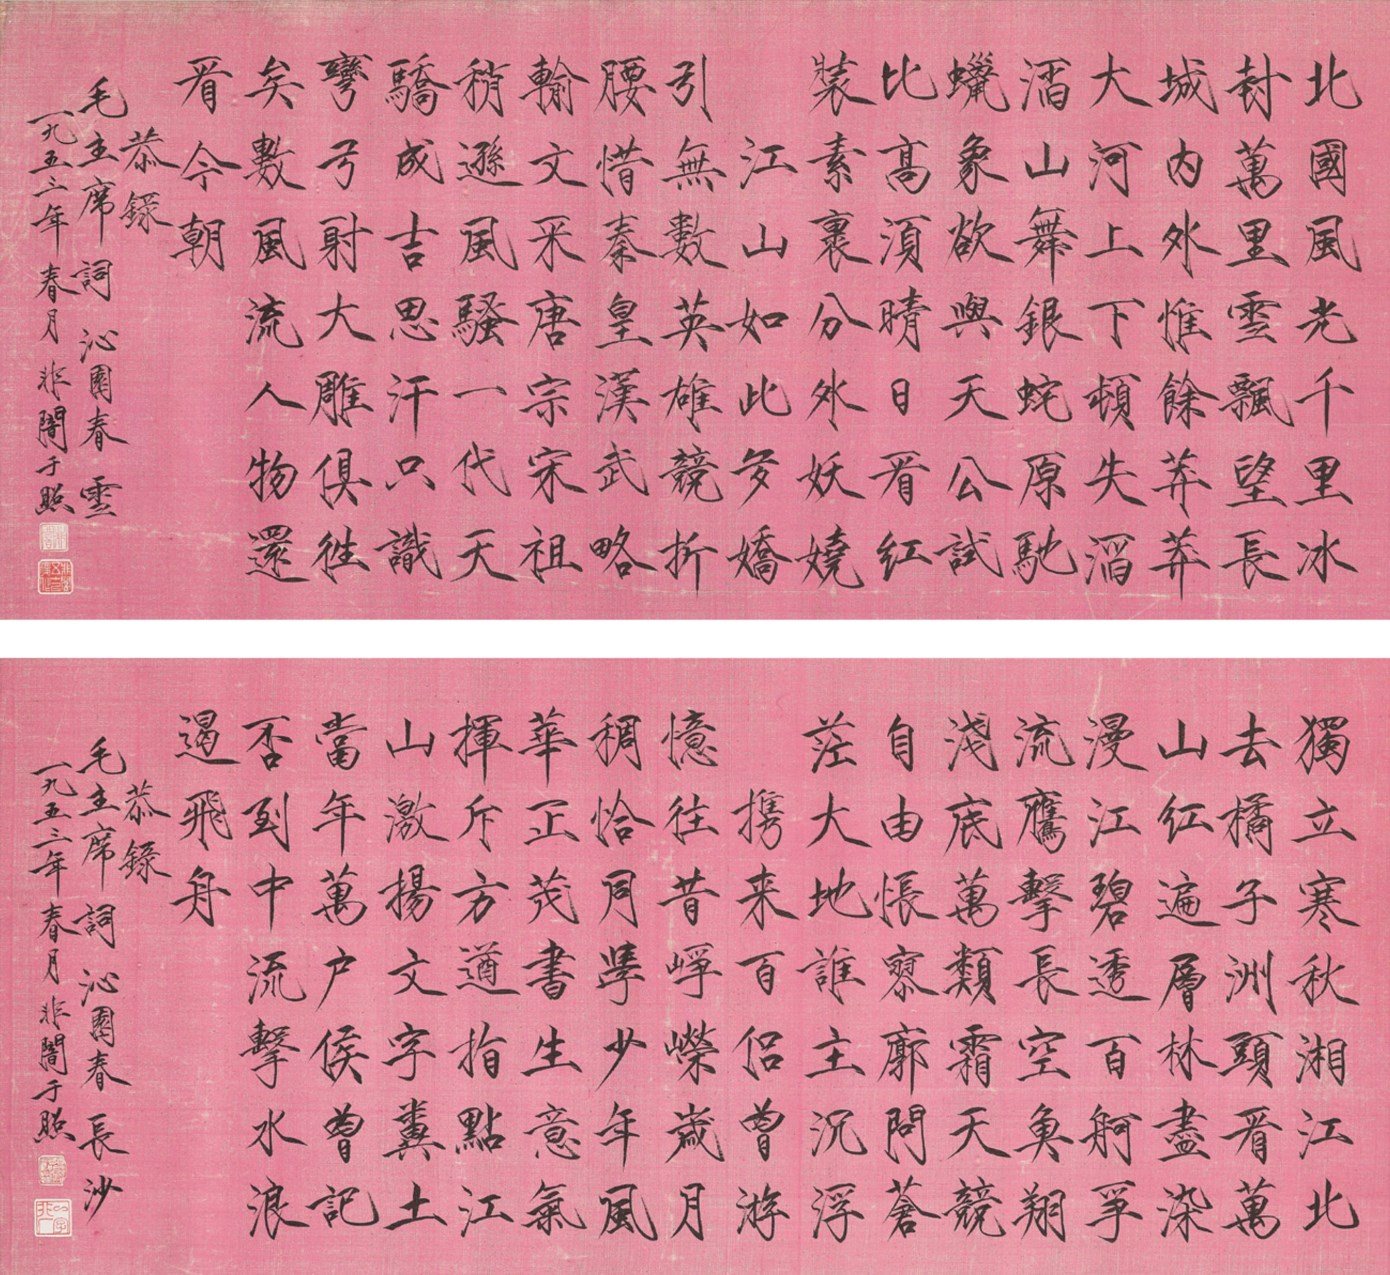 北國風光千里冰
封萬里雪飄望長
城內外惟餘莽莽
大河上下頓失滔
滔山舞銀蛇原馳
蠟象欲與天公試
比高須晴日看紅
裝素裹分外妖嬈
江山如此多嬌
引無數英雄競折
腰惜秦皇漢武略
輸文采唐宗宋祖
稍遜風騷一代天
驕成吉思汗只識
彎弓射大雕俱往
矣數風流人物還
看今朝
恭錄
毛主席詞沁園春雪
一九五三年春月非闇于照
獨立寒秋湘江北
去橘子洲頭看萬
山紅遍層林盡染
漫江碧透百舸爭
流鷹擊長空魚翔
淺底萬類霜天競
自由悵寥廓問蒼
茫大地誰主沉浮
携来百侶曾游
憶往昔崢嶸歲月
稠恰同學少年風
華正茂書生意氣
揮斥方遒指點江
山激揚文字糞土
當年萬户侯曾記
否到中流擊水浪
遏飛舟
恭錄
毛主席詞沁園春長沙
一九五三年春月非闇于照